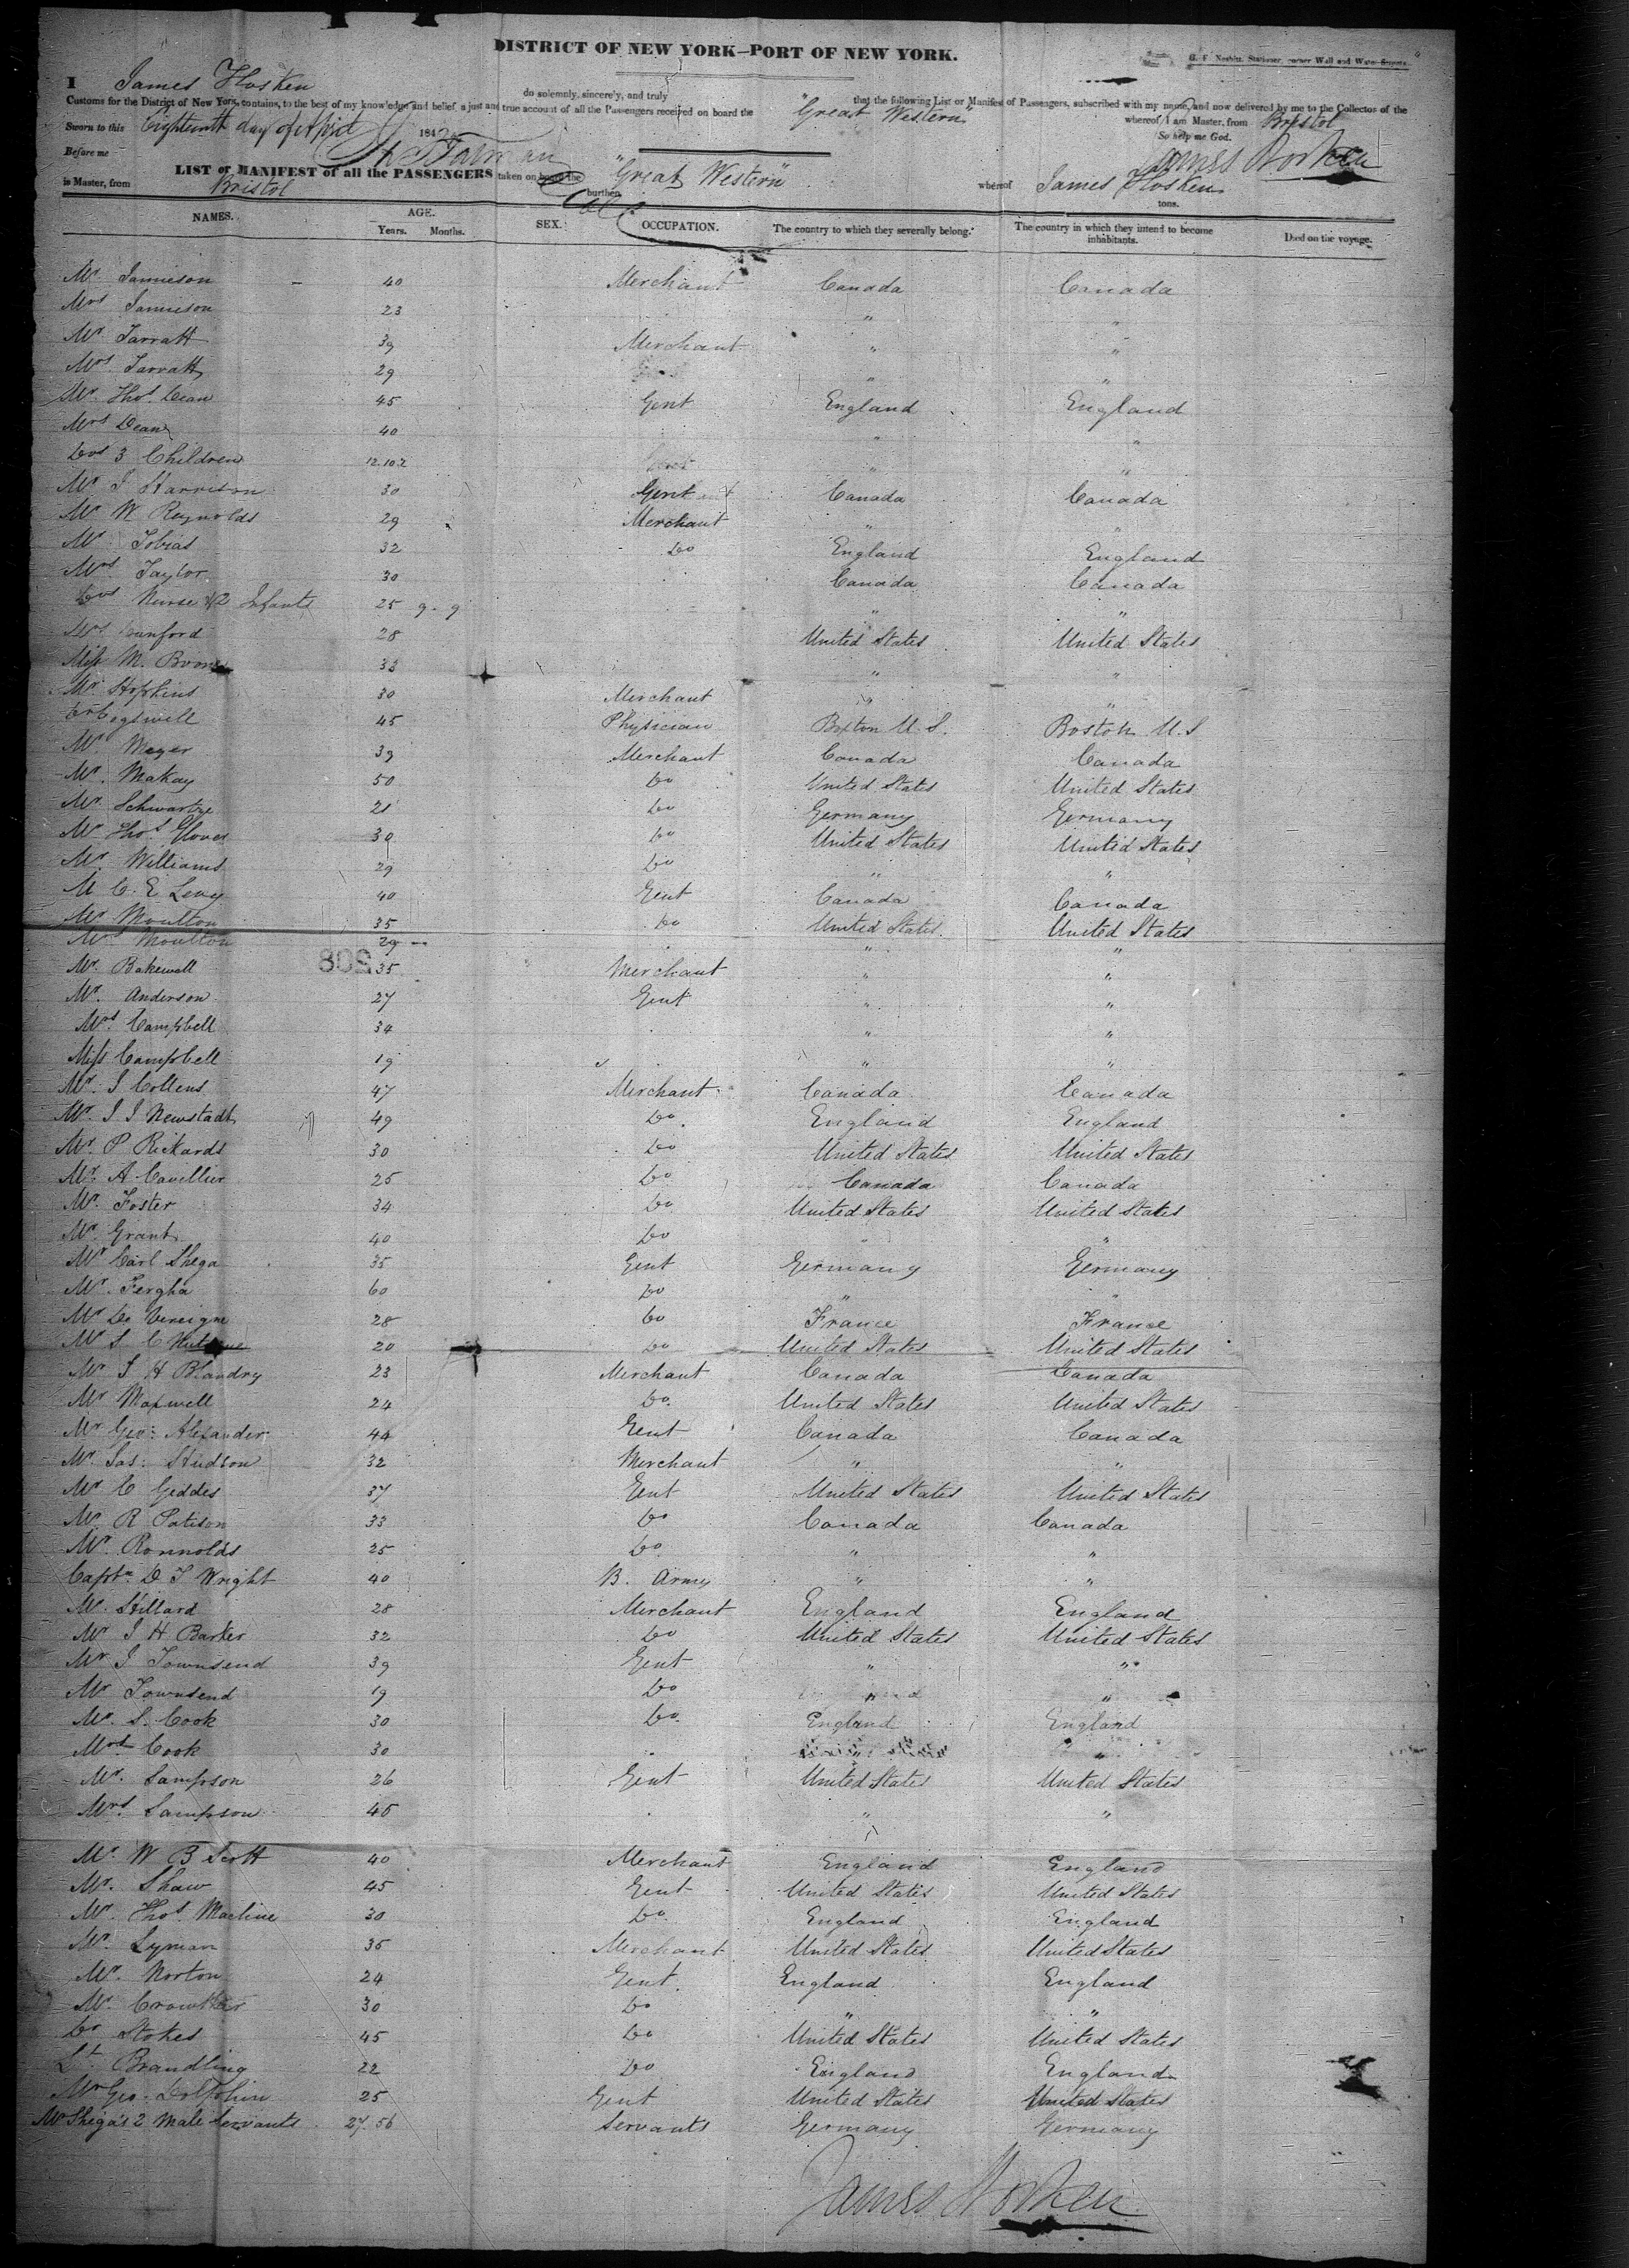 DISTRICT OF NEW YORK—PORT OF NEW YORK.
H. F. Nesbitt, Stationer, corner Wall and Water-Streets.
I James Hosken do solemnly, sincerely, and truly that the following List or Manifest of Passengers, subscribed with my name, and now delivered by me to the Collector of the
Customs for the District of New York, contains, to the best of my knowledge and belief, a just and true account of all the Passengers received on board the "Great Western" whereof I am Master, from Bristol
Sworn to this Eighteenth day of April 184 So help me God.
Before me James Hosken
LIST or MANIFEST of all the PASSENGERS taken on board the "Great Western" whereof James Hosken
is Master, from Bristol burthen tons.
NAMES. AGE. Years. Months. SEX. OCCUPATION. The country to which they severally belong. The country in which they intend to become inhabitants. Died on the voyage.
Mr Jamieson 40 Merchant Canada Canada
Mrs Jamieson 23 " "
Mr Tarratt 39 Merchant " "
Mrs Tarratt 29 " "
Mr Thos Dean 45 Gent England England
Mrs Dean 40 " "
Do 3 Children 12.10.2 " "
Mr J Harrison 30 Gent Canada Canada
Mr W Reynolds 29 Merchant " "
Mr Tobias 32 Do England England
Mrs Taylor 30 Canada Canada
Nurse & 2 Infants 25 9 - 9 " "
28 United States United States
Miss M. 33 " "
Mr Hopkins 30 Merchant " "
Dr Cogswell 45 Physician Boston U.S. Boston U.S
Mr Meyer 39 Merchant Canada Canada
Mr. Makay 50 Do United States United States
Mr Schwartze 21 Do Germany Germany
Mr Thos Glover 30 Do United States United States
Mr Williams 29 Do " "
M C. E Levy 40 Gent Canada Canada
Mr Moulton 35 Do United States United States
Mrs Moulton 29 " "
Mr. Bakewell 35 Merchant " "
208
Mr. Anderson 27 Gent " "
Mrs Campbell 34 " "
Miss Campbell 19 " "
Mr. J Collens 47 Merchant Canada Canada
Mr. J J Newstadt 49 Do. England England
Mr. P Rickards 30 Do United States United States
Mr. A Cavillier 25 Do Canada Canada
Mr. Foster 34 Do United States United States
Mr. Grant 40 Do " "
Mr Carl Shega 35 Gent Germany Germany
Mr. Fergha 60 Do " "
Mr De 28 Do France France
Mr S C 20 Do United States United States
Mr J H Blandry 23 Merchant Canada Canada
Mr Maxwell 24 Do. United States United States
Mr Geo: Alexander 44 Gent Canada Canada
Mr. Jas: Hudson 32 Merchant " "
Mr C Geddes 37 Gent United States United States
Mr R Patison 33 Do Canada Canada
Mr. Ronnolds 25 Do " "
Captn D T Wright 40 B. Army " "
Mr. Hillard 28 Merchant England England
Mr J H Barker 32 Do United States United States
Mr J Townsend 39 Gent " "
Mr Townsend 19 Do " "
Mr. S. Cook 30 Do. England England
Mrs Cook 30 " "
Mr. Sampson 26 Gent United States United States
Mrs. Sampson 45 " "
Mr. W B Scott 40 Merchant England England
Mr. Shaw 45 Gent United States United States
Mr. Thos Macline 30 Do England England
Mr. Lyman 35 Merchant United States United States
Mr. Norton 24 Gent England England
Mr. Crowther 30 Do " "
Do Stokes 45 Do United States United States
Lt. Brandling 22 Do England England
Mr Geo. Dolphin 25 Gent United States United States
Mr Shega's 2 Male Servants 27. 56 Servants Germany Germany
James Hosken